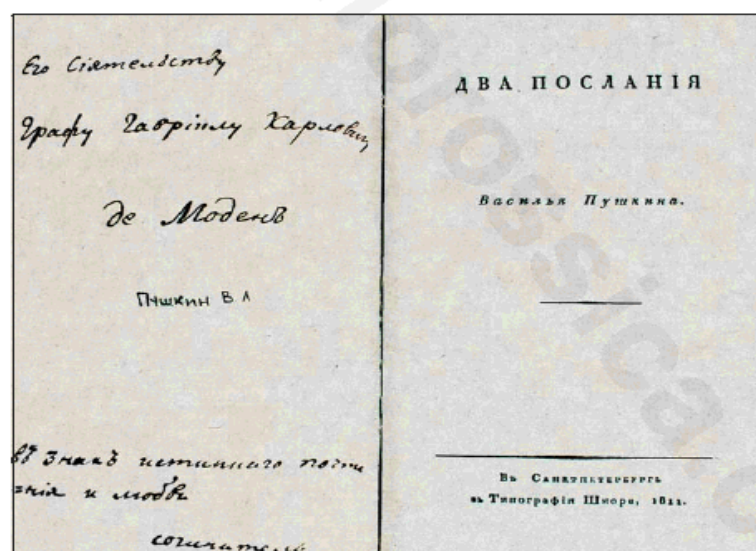 Его Сіятельству
Графу Гавріилу Карлович
де Моденъ
Пушкин В А
въ знакъ истиннаго почте
энія и любви
сочинитель
ДВА ПОСЛАНІЯ
Василья Пушкина.
Въ Санктпетербургѣ
въ Типографіи Шнора, 1811.